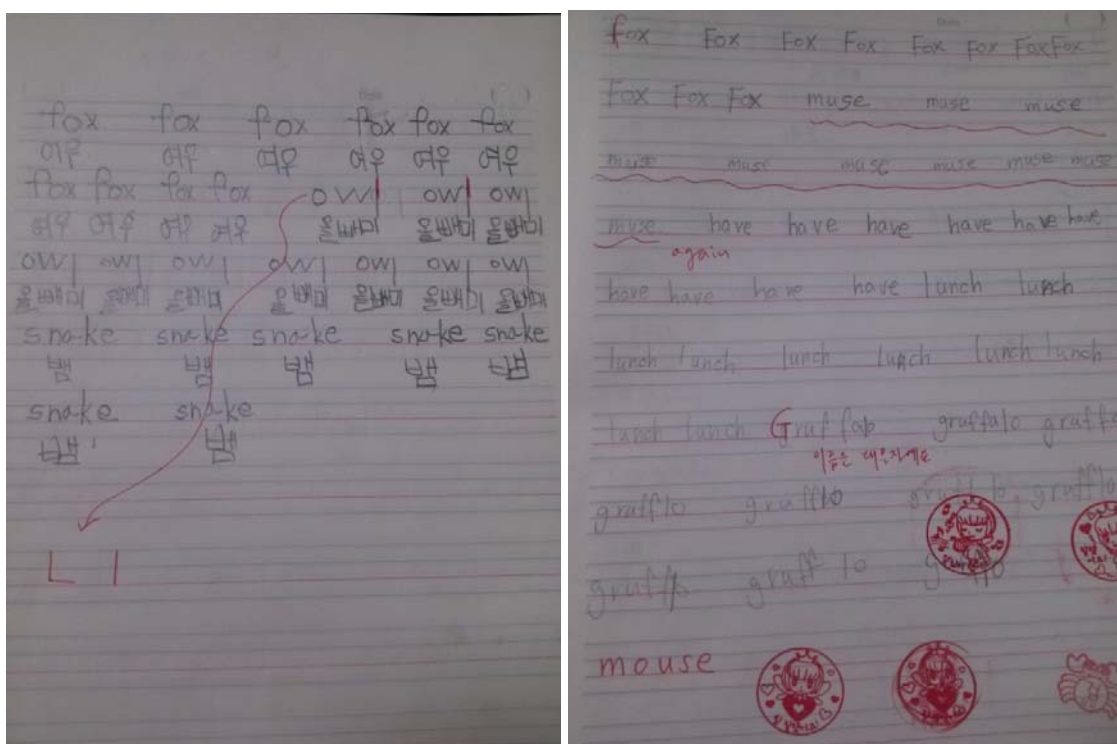 fox fox fox fox fox fox
여우 여우 여우 여우 여우 여우
fox fox fox fox owl owl owl
여우 여우 여우 여우 올빼미 올빼미 올빼미
owl owl owl owl owl owl owl
올빼미 올빼미 올빼미 올빼미 올빼미 올빼미 올빼미
snake snake snake snake snake
뱀 뱀 뱀 뱀 뱀
snake snake
뱀 뱀
L l
fox Fox Fox Fox Fox Fox Fox Fox
Fox Fox Fox muse muse muse
muse muse muse muse muse muse
muse have have have have have have
again
have have have have lunch lunch
lunch lunch lunch lunch lunch lunch
lunch lunch Gruffalo gruffalo
이름은 대문자예요
grufflo grufflo grufflo grufflo
grufflo grufflo
mouse